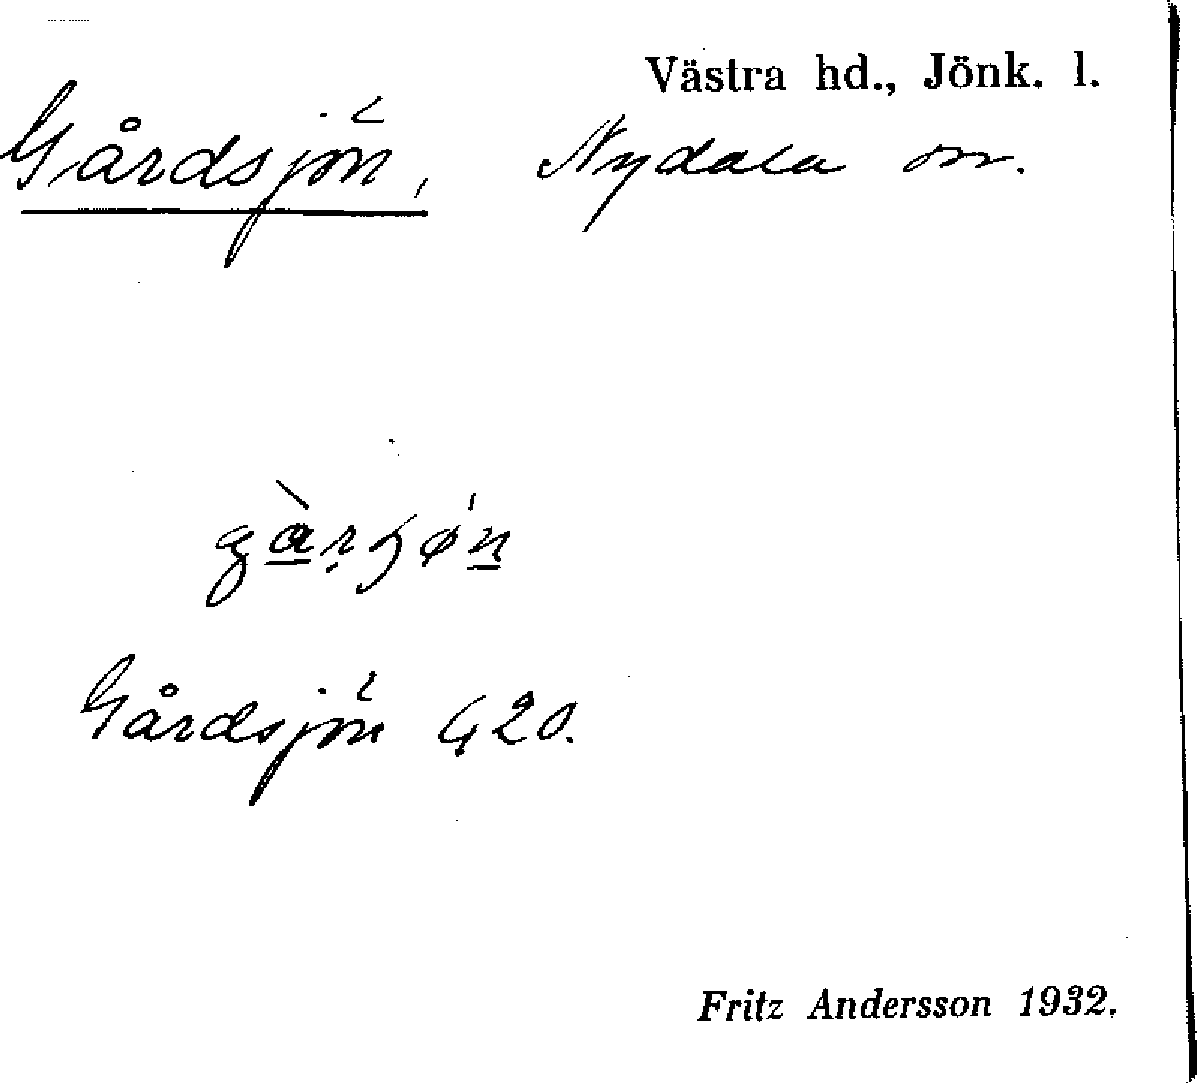 Västra hd., Jönk. l.
Gårdsjön, Nydala sn.
Gårdsjön G20.
Fritz Andersson 1932.